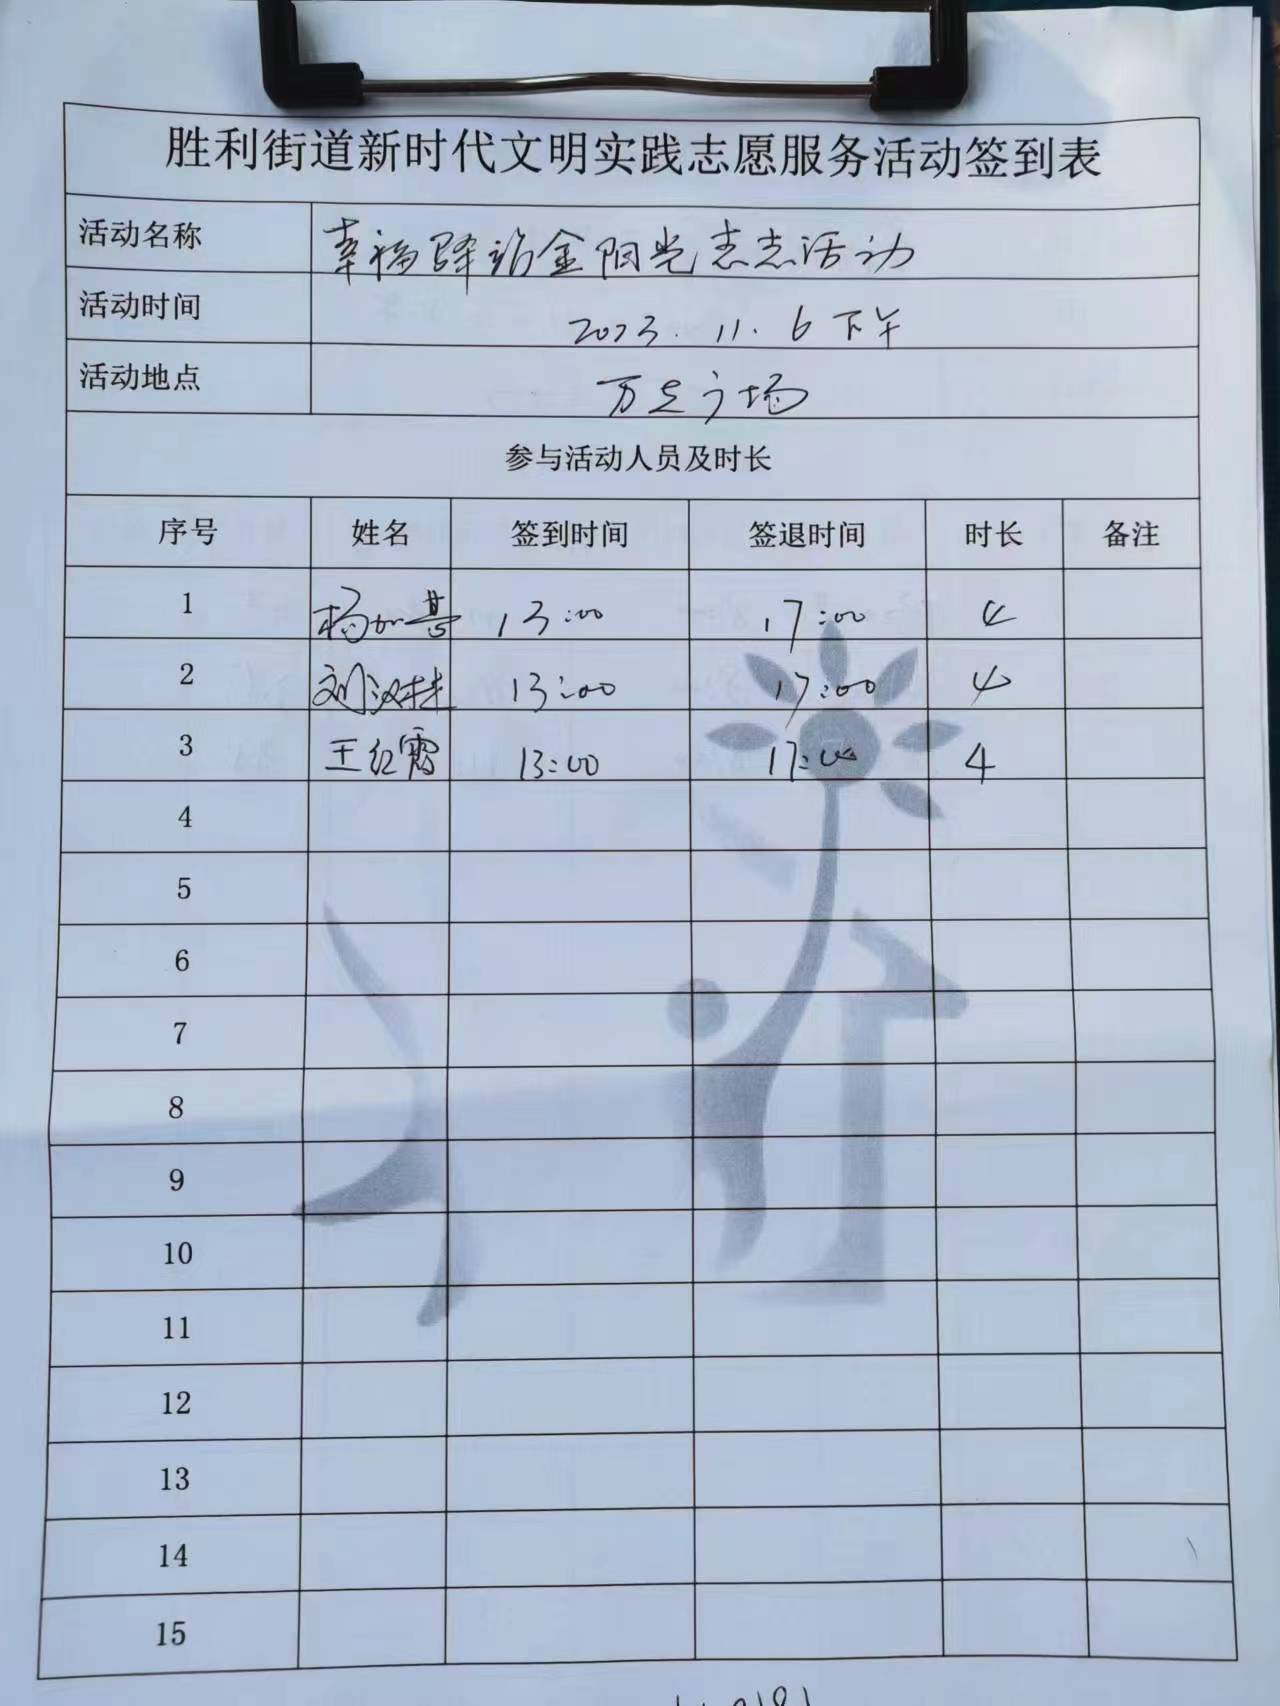 胜利街道新时代文明实践志愿服务活动签到表
活动名称 幸福驿站金阳光志志活动
活动时间 2023.11.6下午
活动地点 万达广场
参与活动人员及时长
序号 姓名 签到时间 签退时间 时长 备注
1 杨加喜 13:00 17:00 4
2 刘汉桂 13:00 17:00 4
3 王红霞 13:00 17:00 4
4
5
6
7
8
9
10
11
12
13
14
15